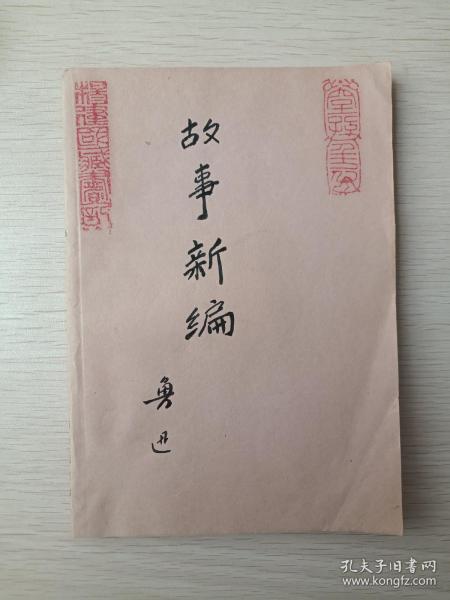 故事新编
鲁迅
孔夫子旧书网
www.kongfz.com